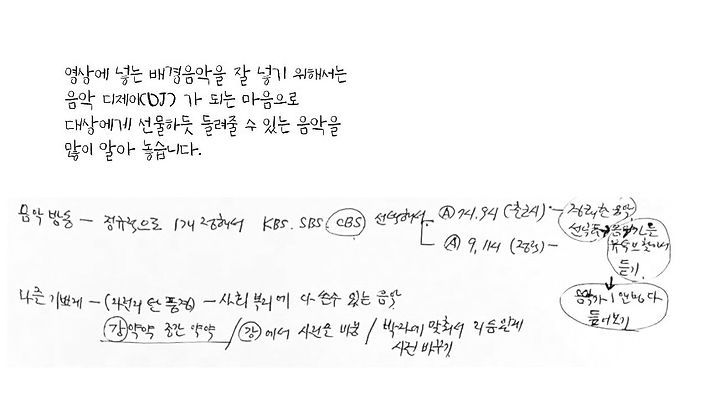 영상에 넣는 배경음악을 잘 넣기 위해서는
음악 디제이(DJ) 가 되는 마음으로
대상에게 선물하듯 들려줄 수 있는 음악을
많이 알아 놓습니다.
음악 방송 — 정규적으로 1개 정해서 KBS. SBS. CBS 선택해서
Ⓐ 7시, 9시 (출근시) — 정리한 음악
Ⓐ 9, 11시
듣기
음악가 1인 다
들어보기
— 사회 부리에 다 쓸수 있는 음악
강약약 중간 약약 / 강에서 사진을 바꿈 / 박자에 맞춰서 리듬있게
사진 바꾸기